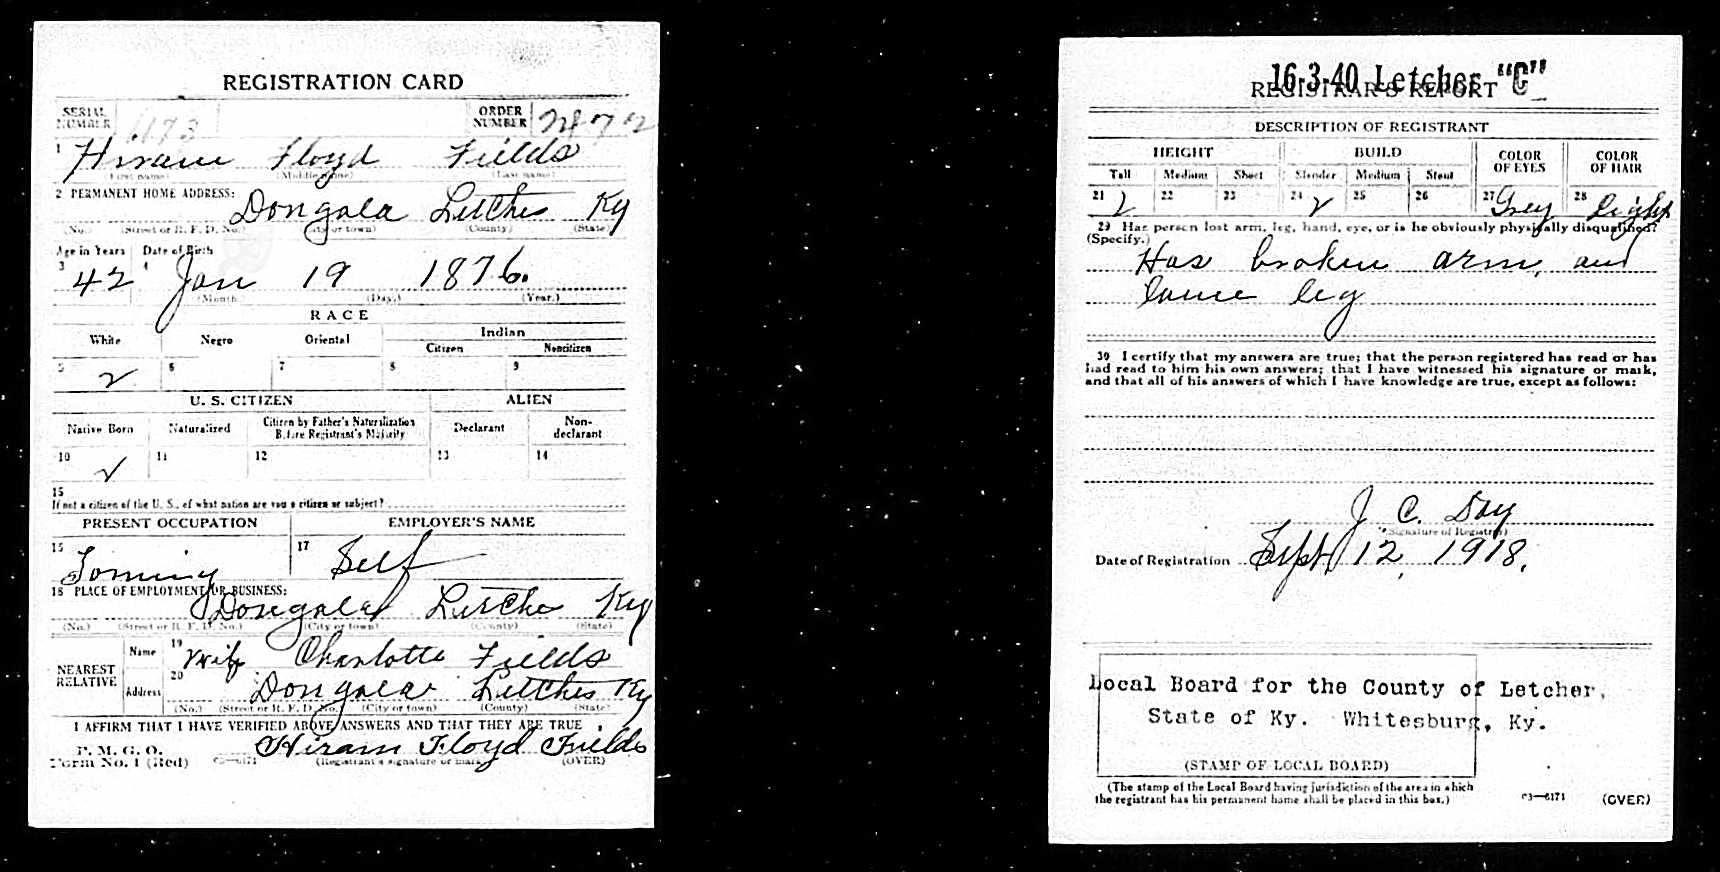 REGISTRATION CARD
SERIAL NUMBER 1173 ORDER NUMBER
1 Hiram Floyd Fields
(First name) (Middle name) (Last name)
2 PERMANENT HOME ADDRESS:
Dongola Letcher Ky
(No.) (Street or R. F. D. No.) (City or town) (County) (State)
Age in Years Date of Birth
3 42 4 Jan 19 1876.
(Month.) (Day.) (Year.)
RACE
White Negro Oriental Indian
Citizen Noncitizen
5 ✓ 6 7 8 9
U. S. CITIZEN ALIEN
Native Born Naturalized Citizen by Father's Naturalization Before Registrant's Majority Declarant Non-declarant
10 ✓ 11 12 13 14
15
If not a citizen of the U. S., of what nation are you a citizen or subject?
PRESENT OCCUPATION EMPLOYER'S NAME
16 Farming 17 Self
18 PLACE OF EMPLOYMENT OR BUSINESS:
Dongola Letcher Ky
(No.) (Street or R. F. D. No.) (City or town) (County) (State)
NEAREST RELATIVE Name 19 Wife Charlotte Fields
Address 20 Dongola Letcher Ky
(No.) (Street or R. F. D. No.) (City or town) (County) (State)
I AFFIRM THAT I HAVE VERIFIED ABOVE ANSWERS AND THAT THEY ARE TRUE
P. M. G. O.
Form No. 1 (Red) Hiram Floyd Fields
(Registrant's signature or mark) (OVER)
16-3-40 Letcher "C"
REGISTRAR'S REPORT
DESCRIPTION OF REGISTRANT
HEIGHT BUILD COLOR OF EYES COLOR OF HAIR
Tall Medium Short Slender Medium Stout
21 ✓ 22 23 24 ✓ 25 26 27 Grey 28 Light
29 Has person lost arm, leg, hand, eye, or is he obviously physically disqualified?
(Specify.)
Has broken arm, and
lame leg
30 I certify that my answers are true; that the person registered has read or has
had read to him his own answers; that I have witnessed his signature or mark,
and that all of his answers of which I have knowledge are true, except as follows:
J. C. Day
(Signature of Registrar)
Date of Registration Sept 12, 1918.
Local Board for the County of Letcher,
State of Ky. Whitesburg, Ky.
(STAMP OF LOCAL BOARD)
(The stamp of the Local Board having jurisdiction of the area in which
the registrant has his permanent home shall be placed in this box.)
03—6171 (OVER)